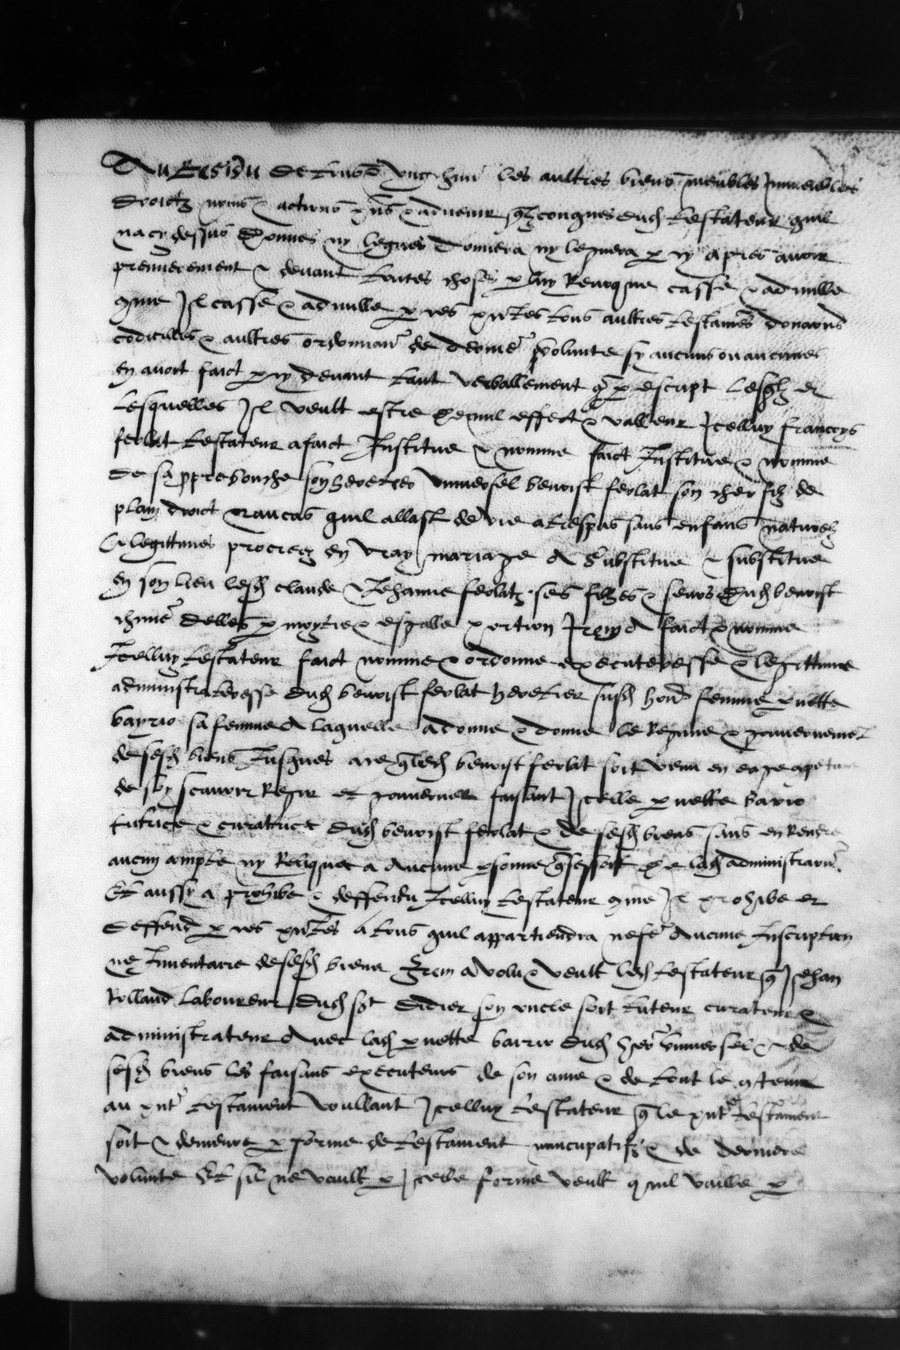 Au Residu de tous ung chun les aultres biens meubles Inmeubles
droictz noms & actions pns & advenir qlzconques dudt testateur quil
na cy dessus donnes ny legues donnera ny leguera p cy apres avoir
premierement & devant toutes choses p luy Revoque casse & adnulle
qme Il casse & adnulle p ces pntes tous aultres testames donaons
codicilles & aultres ordonnan de derniere volunte sy aucuns ou aucunes
en avoit faict p cy devant tant verballement q p escript lesqlz et
lesquelles Il veult estre de nul effect & valleur Icelluy francoys
ferlat testateur a faict Institue & nomme faict Institue & nomme
de sa ppre bouche son heretier universel benoist ferlat son cher filz de
plain droict & au cas quil allast de vie a trespas sans enfans naturelz
& legittimes procreez en vray mariage A substitue & substitue
en son lieu lesd claude & Jehanne ferlatz ses filles & seurs dud benoist
chune delles p moytie & esgalle portion Item A faict & nomme
Icelluy testateur faict nomme & ordonne executeresse & legittime
administreresse dud benoist ferlat heretier susd hon femme pnette
bayrio sa femme A laquelle a donne & donne le Regime & gouvernemet
de sesd biens Jusques a ce q led benoist ferlat soit venu en eage
de soy scavoir Regir et gouverner faisant Icelle pnette bario
tutrice & curatrice dud benoist ferlat & de sesd biens sans en Rendre
aucun compte ny Relique a Aucune psonne de lad administraon
Et aussy a prohibe & deffendu Icelluy testateur qme Il prohibe et
deffend p ces pntes a tous quil appartiendra ne fe Aucune Inscription
ne Inventaire de sesd biens Item a volu & veult led testateur q Jehan
Rolland laboureur dud st didier son uncle soit tuteur curateur &
administrateur Avec lad pnette bairio dud her universel & de
sesd biens les faisans executeurs de son ame & de tout le qtenu
au pnt testament voullant Icelluy testateur q le pnt testament
soit & demeure p forme de testament nuncupatif & de derniere
volunte Et sil ne vault p Icelle forme veult quil vaille p